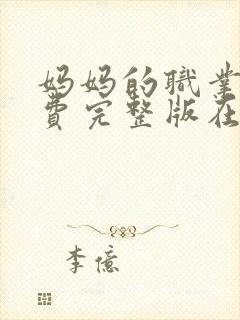 妈妈的職業
費完整版在
李億